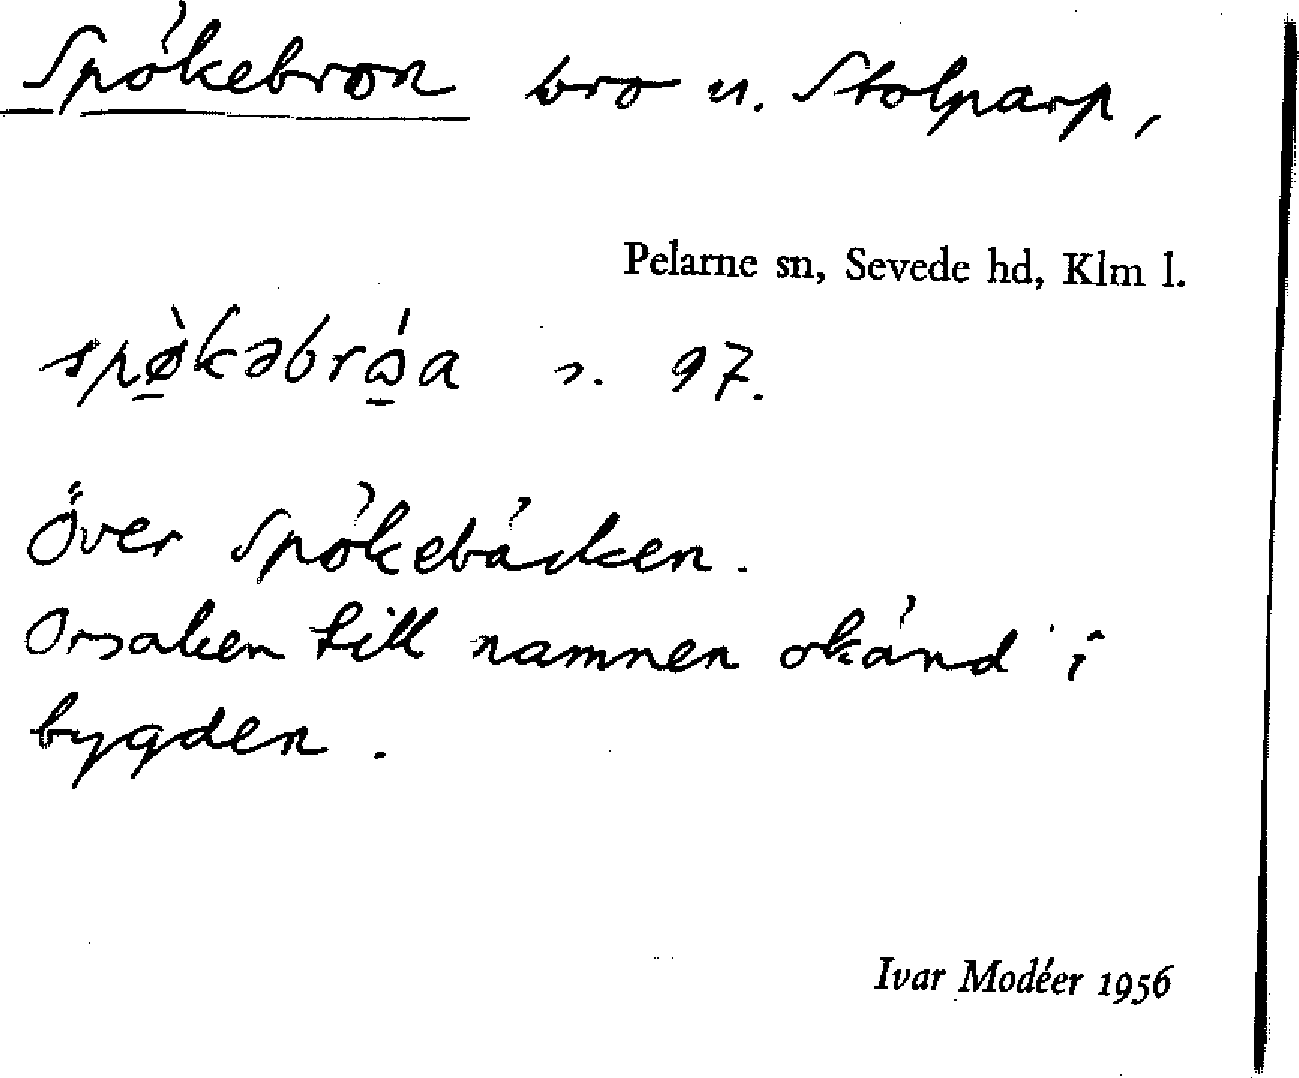 Spökebron bro u. Stolparp,
Pelarne sn, Sevede hd, Klm l.
spø̠̀kəbrώ̠a s. 97.
Över Spökebäcken.
Orsaken till namnen okänd i
bygden.
Ivar Modéer 1956